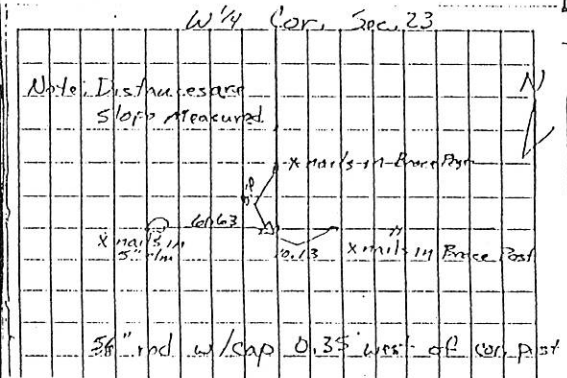 W 1/4 Cor. Sec. 23
N
Note: Distances are
Slope Measured.
X nails in Brace Post
60.63
X nails in
5" elm
10.13
X nails in Brace Post
5/8" rod w/cap 0.35' west of cor. post